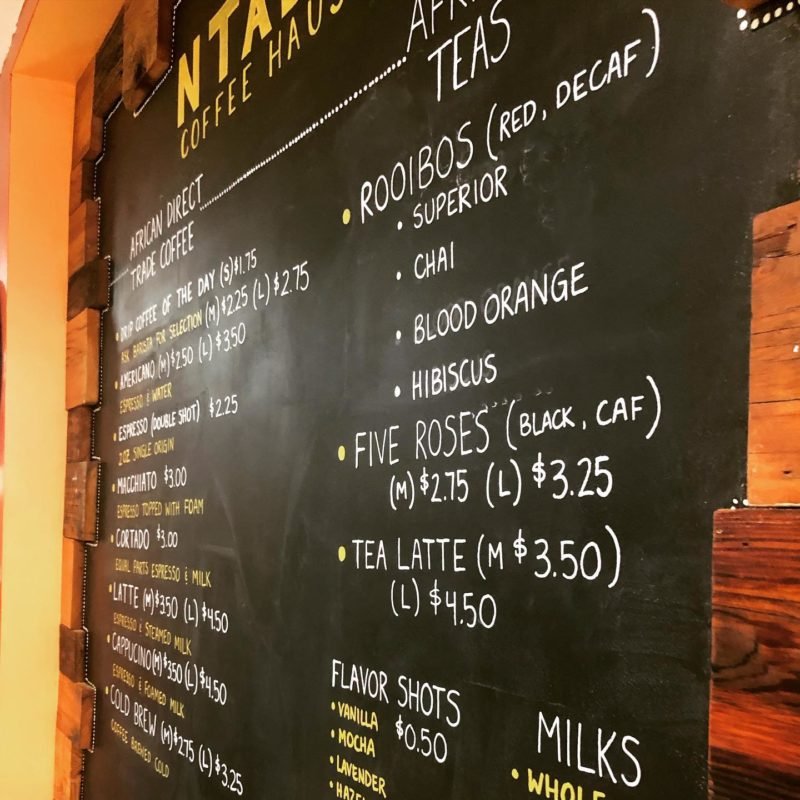 COFFEE HAUS
AFRICAN DIRECT
TRADE COFFEE
• DRIP COFFEE OF THE DAY (S)$1.75
ASK BARISTA FOR SELECTION (M)$2.25 (L)$2.75
• AMERICANO (M)$2.50 (L)$3.50
ESPRESSO & WATER
• ESPRESSO (DOUBLE SHOT) $2.25
2 OZ. SINGLE ORIGIN
• MACCHIATO $3.00
ESPRESSO TOPPED WITH FOAM
• CORTADO $3.00
EQUAL PARTS ESPRESSO & MILK
• LATTE (M)$3.50 (L)$4.50
ESPRESSO & STEAMED MILK
• CAPPUCINO (M)$3.50 (L)$4.50
ESPRESSO & FOAMED MILK
• COLD BREW (M)$2.75 (L)$3.25
COFFEE BREWED COLD
TEAS
• ROOIBOS (RED, DECAF)
• SUPERIOR
• CHAI
• BLOOD ORANGE
• HIBISCUS
• FIVE ROSES (BLACK, CAF)
(M)$2.75 (L)$3.25
• TEA LATTE (M $3.50)
(L) $4.50
FLAVOR SHOTS
$0.50
• VANILLA
• MOCHA
• LAVENDER
MILKS
• WHOLE